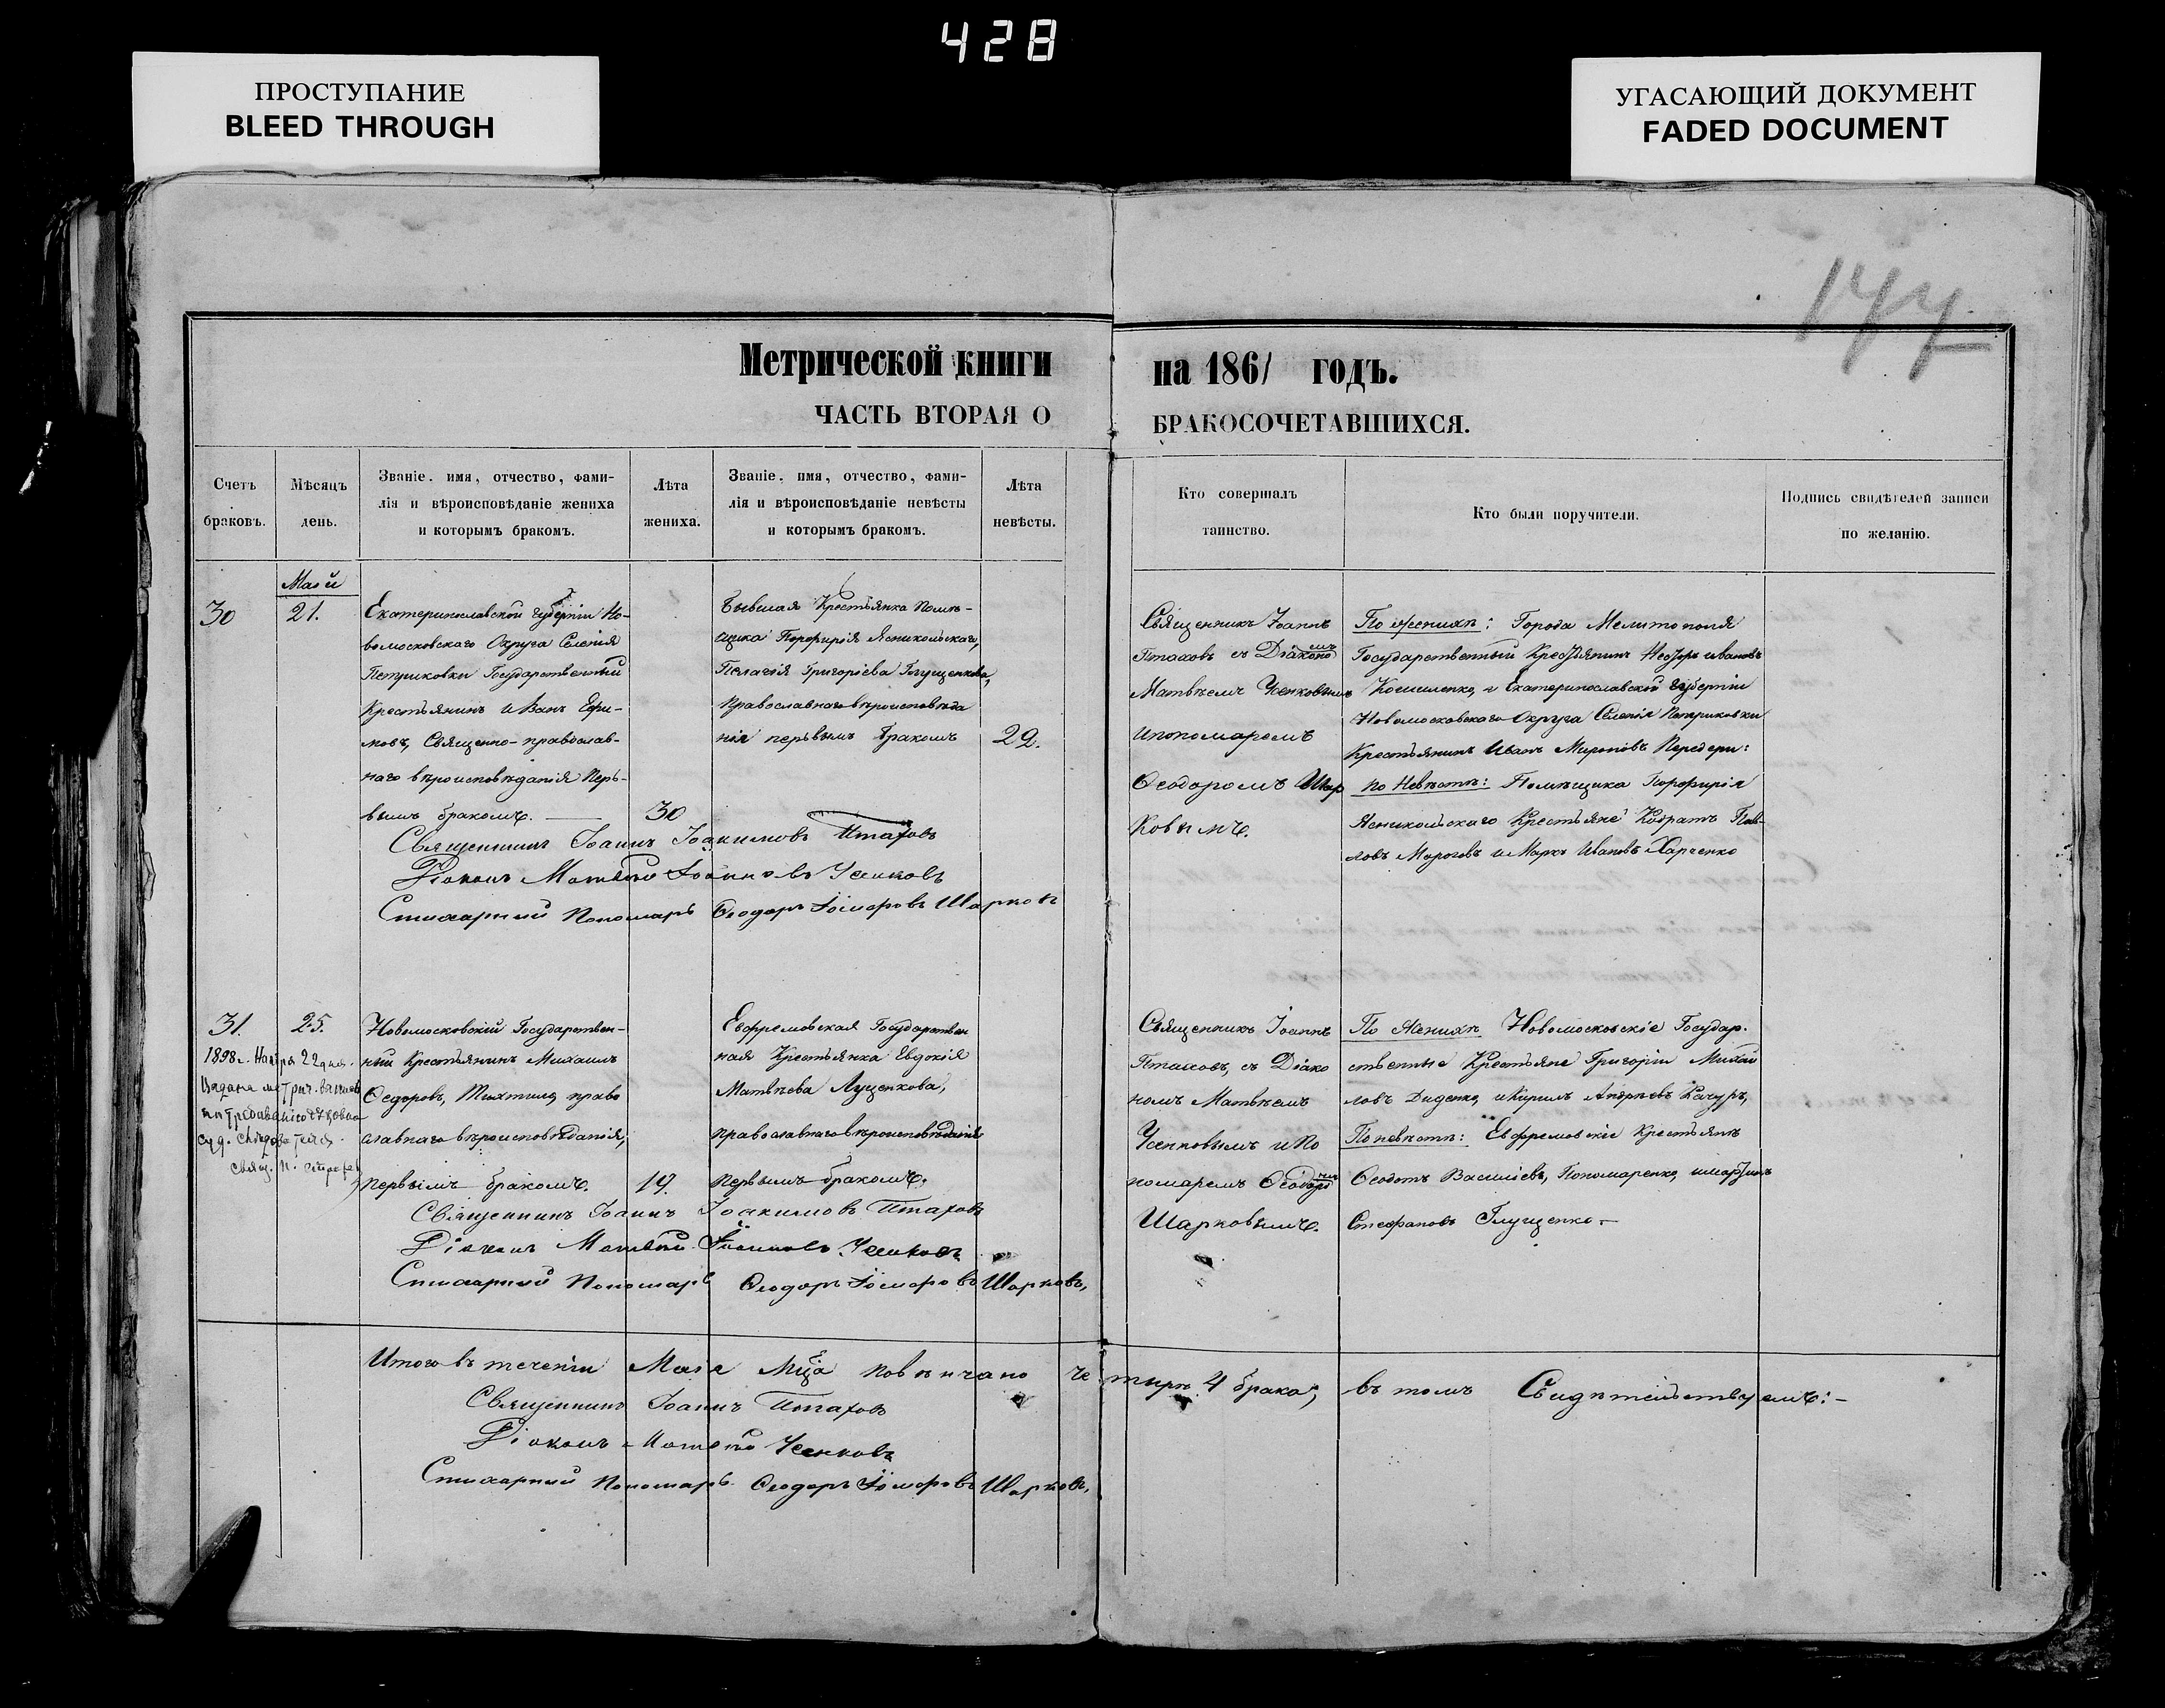 428
ПРОСТУПАНИЕ
BLEED THROUGH
УГАСАЮЩИЙ ДОКУМЕНТ
FADED DOCUMENT
177
Метрической книги на 1861 годъ.
ЧАСТЬ ВТОРАЯ О БРАКОСОЧЕТАВШИХСЯ.
Счетъ
браковъ.
Мѣсяцъ
день.
Званіе, имя, отчество, фами-
лія и вѣроисповѣданіе жениха
и которымъ бракомъ.
Лѣта
жениха.
Званіе, имя, отчество, фами-
лія и вѣроисповѣданіе невѣсты
и которымъ бракомъ.
Лѣта
невѣсты.
Кто совершалъ
таинство.
Кто были поручители.
Подпись свидѣтелей записи
по желанію.
Май
30
21.
Екатеринославской губерніи Но-
вомосковскаго Округа Селенія
Петриковки Государственный
Крестьянинъ Иванъ Ефи-
мовъ, Священко- православ-
наго вѣроисповѣданія пер-
вымъ бракомъ.
30
Бывшая Крестьянка Помѣ-
щика Порфирія Ясникольскаго,
Пелагія Григоріева Глущенкова,
православнаго вѣроисповѣда
нія первымъ бракомъ
22.
Священникъ Іоаннъ
Птаховъ съ Діакономъ
Матвѣемъ Усенковымъ
и пономаремъ
Ѳеодоромъ Шар
ковымъ.
По женихѣ: Города Мелитополя
Государственный Крестьянинъ Несторъ Ивановъ
Кошиленко, и Екатеринославской губерніи
Новомосковскаго Округа Селенія Петриковки
Крестьянинъ Иванъ Мироновъ Передери:
по Невѣстѣ: Помѣщика Порфирія
Ясникольскаго Крестьяне Кондратъ Пав-
ловъ Морозовъ и Маркъ Ивановъ Харченко
Священникъ Іоаннъ Іоакимовъ Птаховъ
Діаконъ Матвѣй Іоанновъ Усенковъ
Стихарный Пономарь Ѳеодоръ Іосифовъ Шарковъ
31.
25.
1898г. Ноября 22 дня.
Выдана метрич. выпись
по требованію
суд. слѣдователя.
Свящ. П.
Новомосковскій Государствен-
ный Крестьянинъ Михаилъ
Ѳедоровъ, Тихтило, право
славнаго вѣроисповѣданія,
первымъ бракомъ.
19.
Ефремовская Государствен
ная Крестьянка Евдокія
Матвѣева Луценкова,
православнаго вѣроисповѣданія
первымъ бракомъ.
Священникъ Іоаннъ
Птаховъ, съ Діако
номъ Матвѣемъ
Усенковымъ и По
номаремъ Ѳеодоромъ
Шарковымъ.
По Женихѣ Новомосковскіе Государ.
ственные Крестьяне Григорій Михай
ловъ Диденко, и Кирилъ Андреевъ Качуръ,
По невѣстѣ: Ефремовскіе крестьяне
Ѳеодотъ Василіевъ, Пономаренко, и Мартинъ
Стефановъ Глущенко.-
Священникъ Іоаннъ Іоакимовъ Птаховъ
Діаконъ Матвѣй Іоанновъ Усенковъ
Стихарный Пономарь Ѳеодоръ Іосифовъ Шарковъ,
Итого въ теченіи Мая Мца повѣнчано четыре 4 брака, въ томъ Свидѣтельствуемъ:-
Священникъ Іоаннъ Птаховъ
Діаконъ Матвѣй Усенковъ
Стихарный Пономарь Ѳеодоръ Іосифовъ Шарковъ,